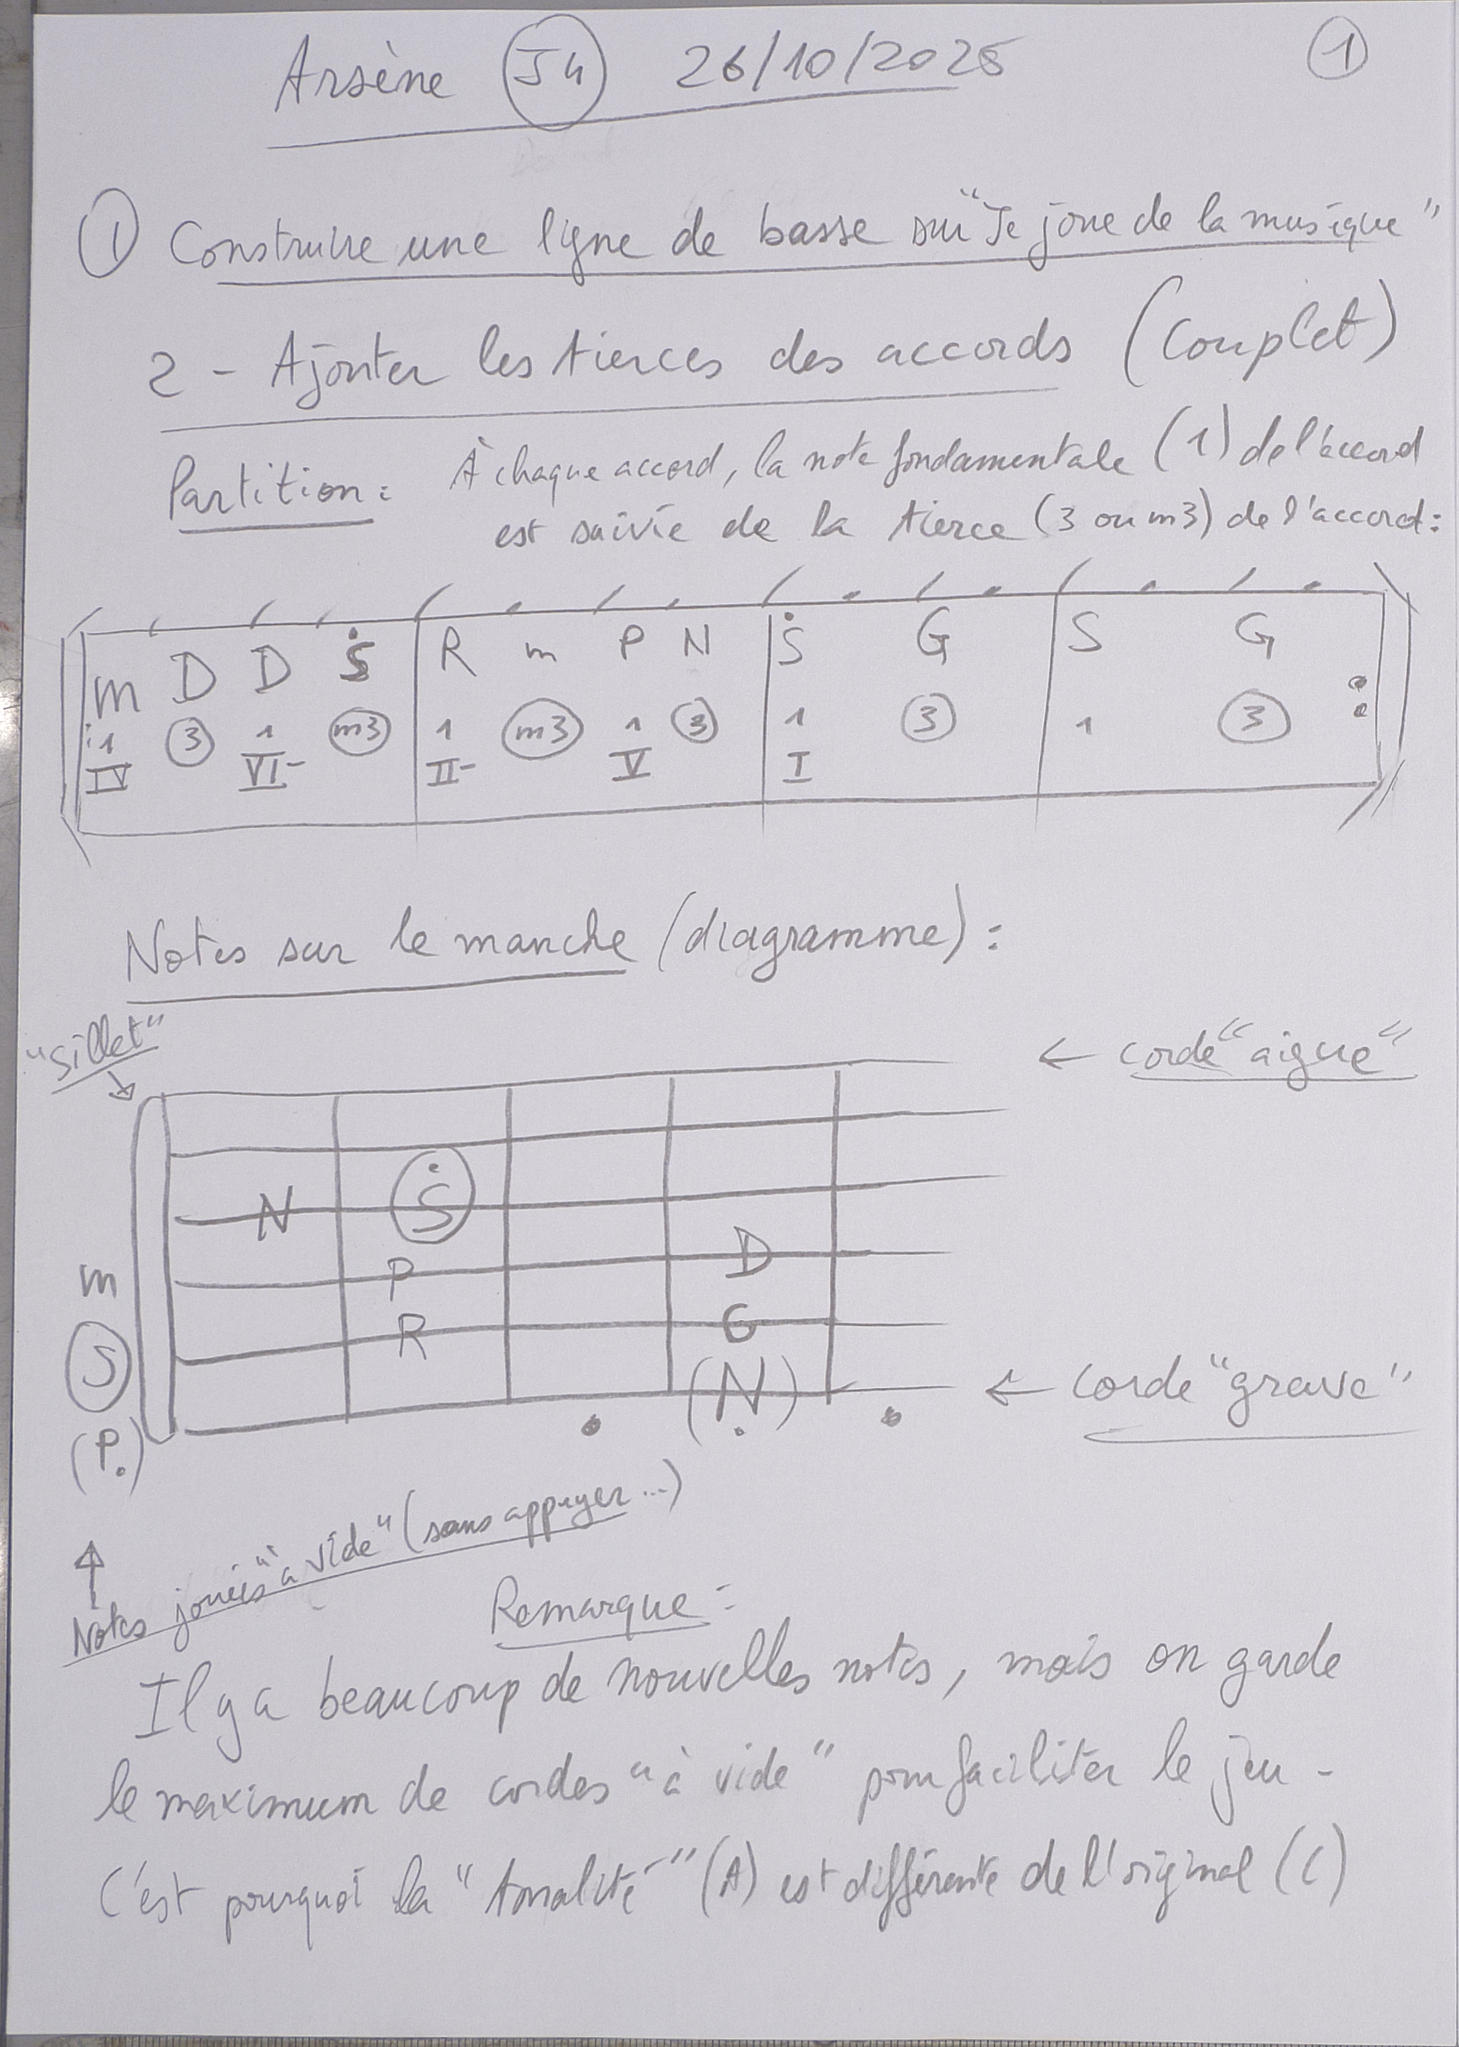 Arsène J4 26/10/2025 1
1 Construire une ligne de basse sur "Je joue de la musique"
2 - Ajouter les tierces des accords (Couplet)
Partition : À chaque accord, la note fondamentale (1) de l'accord
est suivie de la tierce (3 ou m3) de l'accord :
m D D Ṡ R m P N Ṡ G S G
1 3 1 m3 1 m3 1 3 1 3 1 3
IV VI- II- V I
Notes sur le manche (diagramme) :
"Sillet"
← corde "aigue"
N Ṡ
m P D
S R G
(P.) (N.) ← corde "grave"
Notes jouées "à vide" (sans appuyer...)
Remarque :
Il y a beaucoup de nouvelles notes, mais on garde
le maximum de cordes "à vide" pour faciliter le jeu -
C'est pourquoi la "tonalité" (A) est différente de l'original (C)